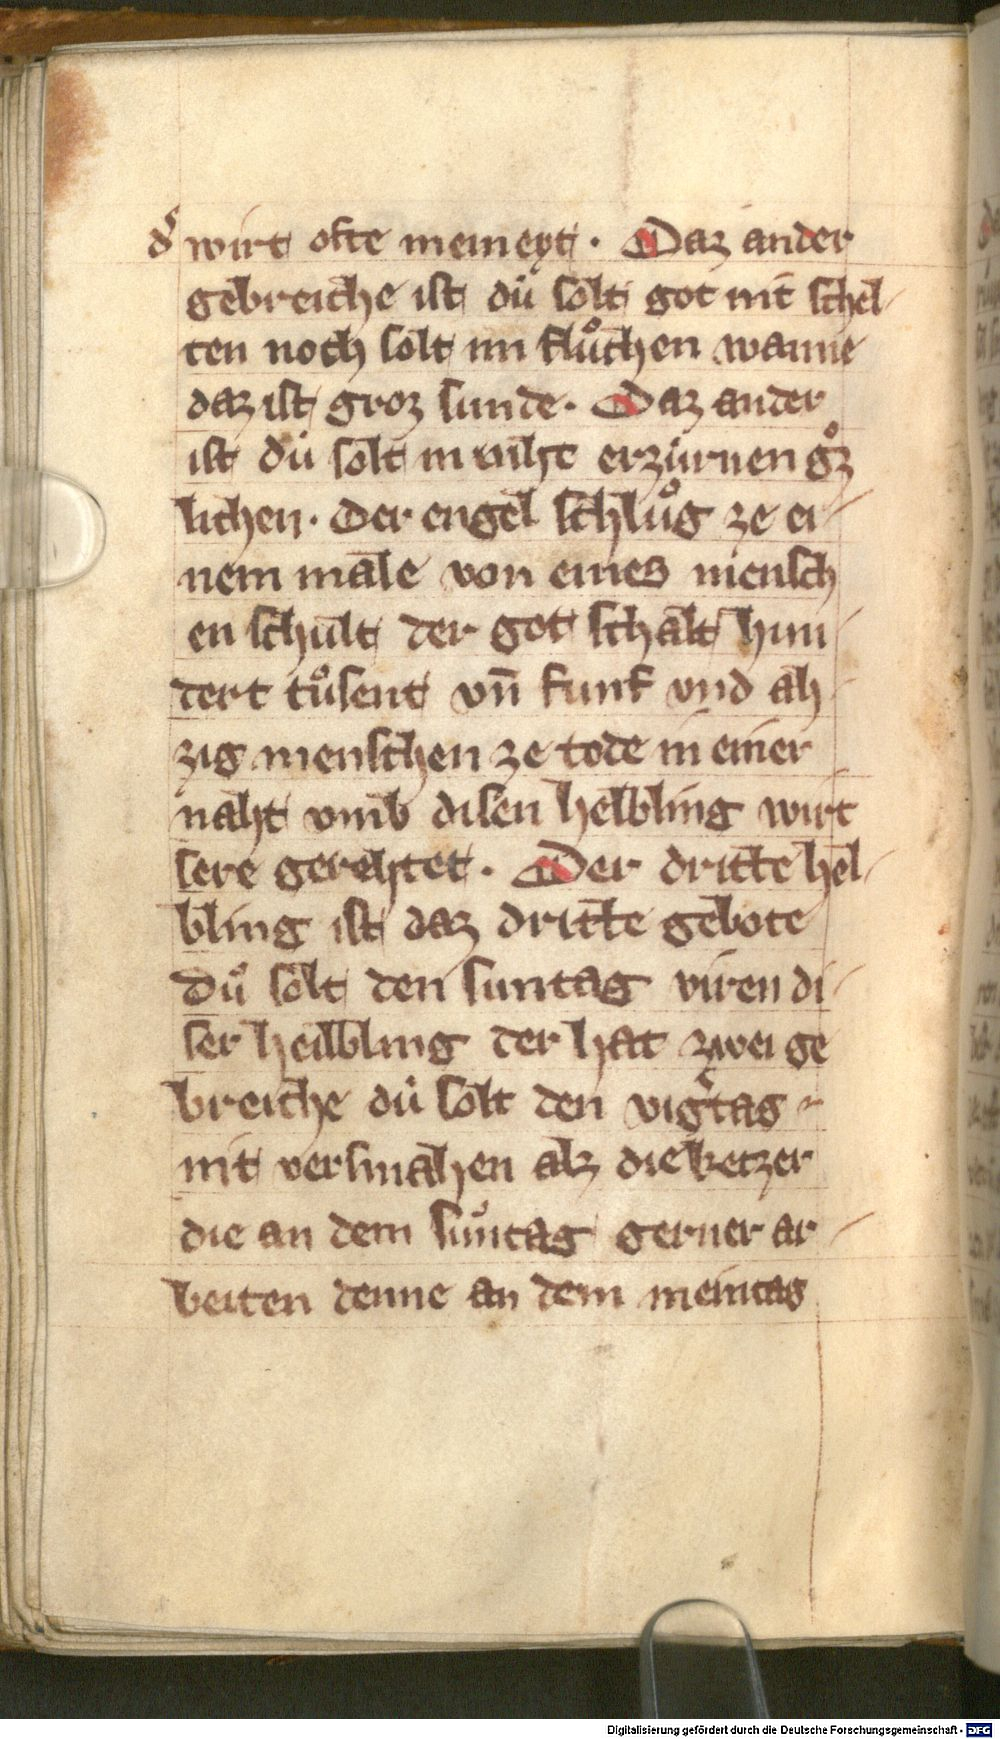 dˢ wirt ofte meineyt · Daz ander
gebreiche ist du̍ solt got nit schel-
ten noch solt im flůchen wanne
daz ist groz sunde · Daz ander
ist du̍ solt in niht erzu̍rnen
lichen · Der engel schlůg ze ei-
nem male von eines mensch
en schult der got schalt hun-
dert tůsent vn̄ funf vnd ah-
zig menschen ze tode in einer
naht vmb disen helbling wirt
sere gerehtet · Der dritte hel-
bling ist daz dritte gebote
Dů solt den suntag viren di-
ser heilbling der hat zwei ge
breiche du̍ solt den vigͭtag -
nit versmahen alz die ketzer
die an dem suntag gerner ar-
beiten denne an dem meintag
Digitalisierung gefördert durch die Deutsche Forschungsgemeinschaft - DFG